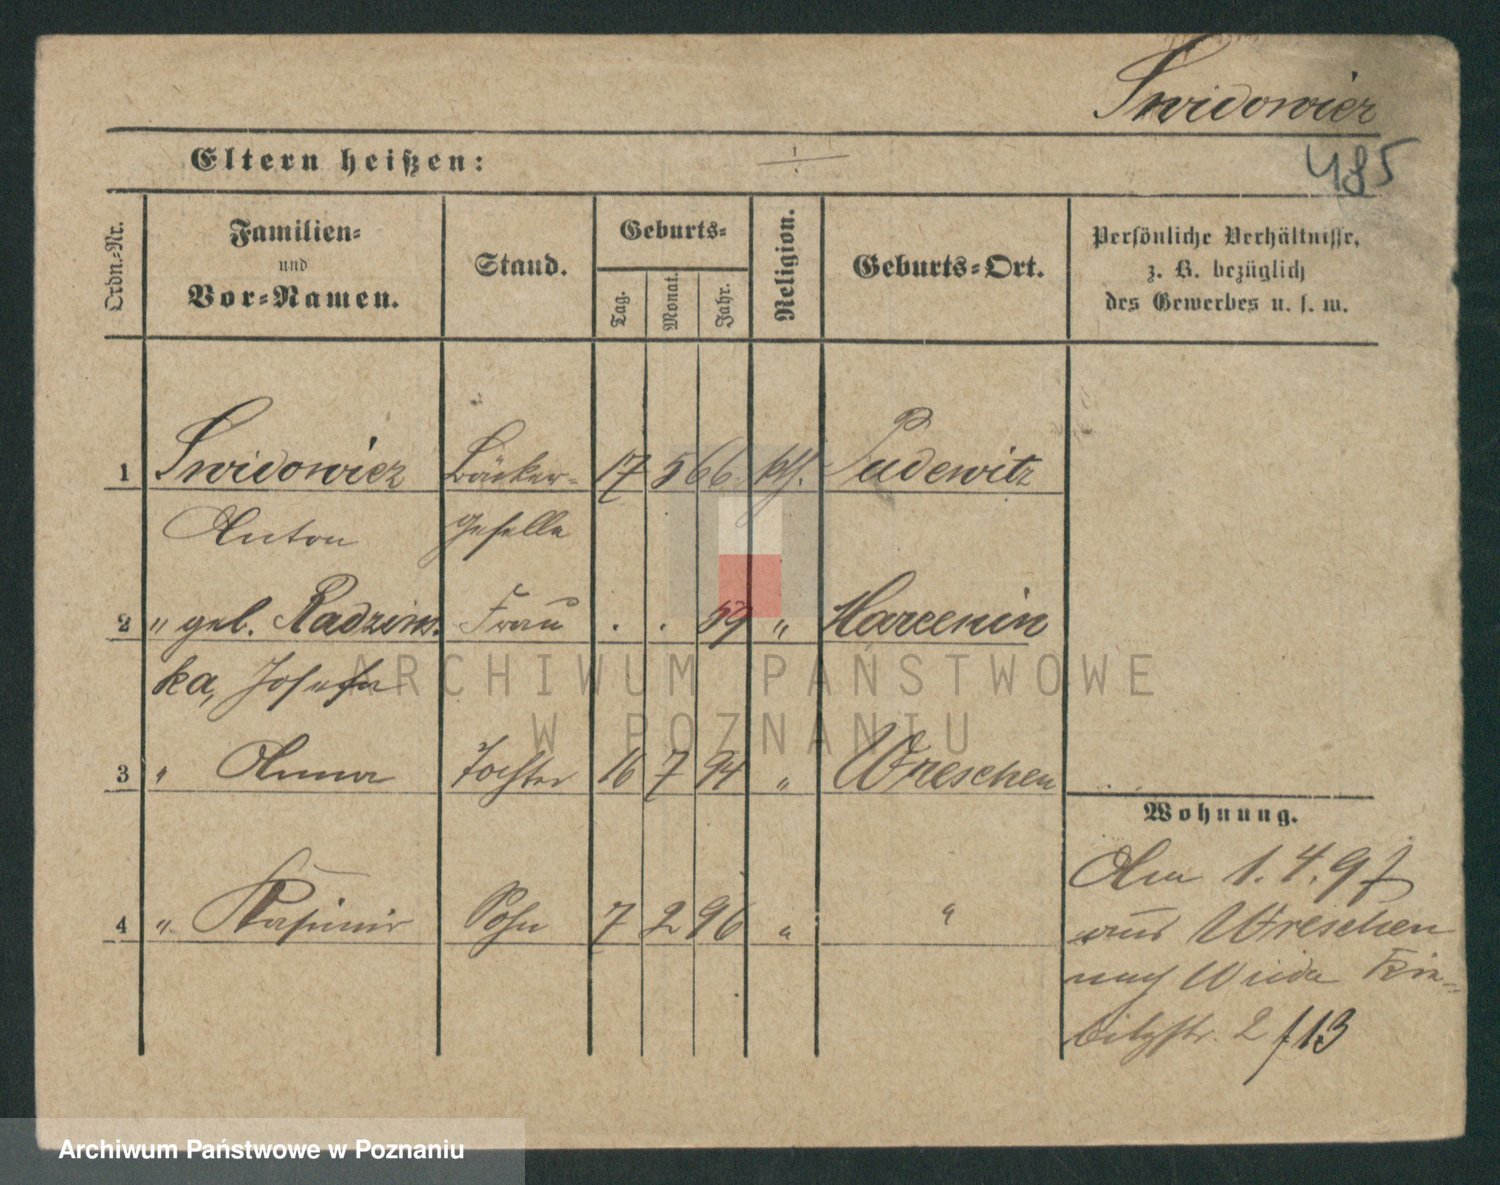 Swidowicz
485
Eltern heißen:
Ordn.-Nr.
Familien-
und
Vor-Namen.
Stand.
Geburts-
Tag.
Monat.
Jahr.
Religion.
Geburts-Ort.
Persönliche Verhältnisse,
z. B. bezüglich
des Gewerbes u. s. w.
1 Swidowicz Bäcker- 17 5 66 kth. Pudewitz
Anton geselle
2 " geb. Radzims- Frau . . 59 "
ka, Josefa
3 " Anna Tochter 16 7 94 " Wreschen
4 " Kasimir Sohn 7 2 96 " "
Wohnung.
Am 1. 4. 97
aus Wreschen
nach Wilda
str. 2 /13
ARCHIWUM PAŃSTWOWE
W POZNANIU
Archiwum Państwowe w Poznaniu